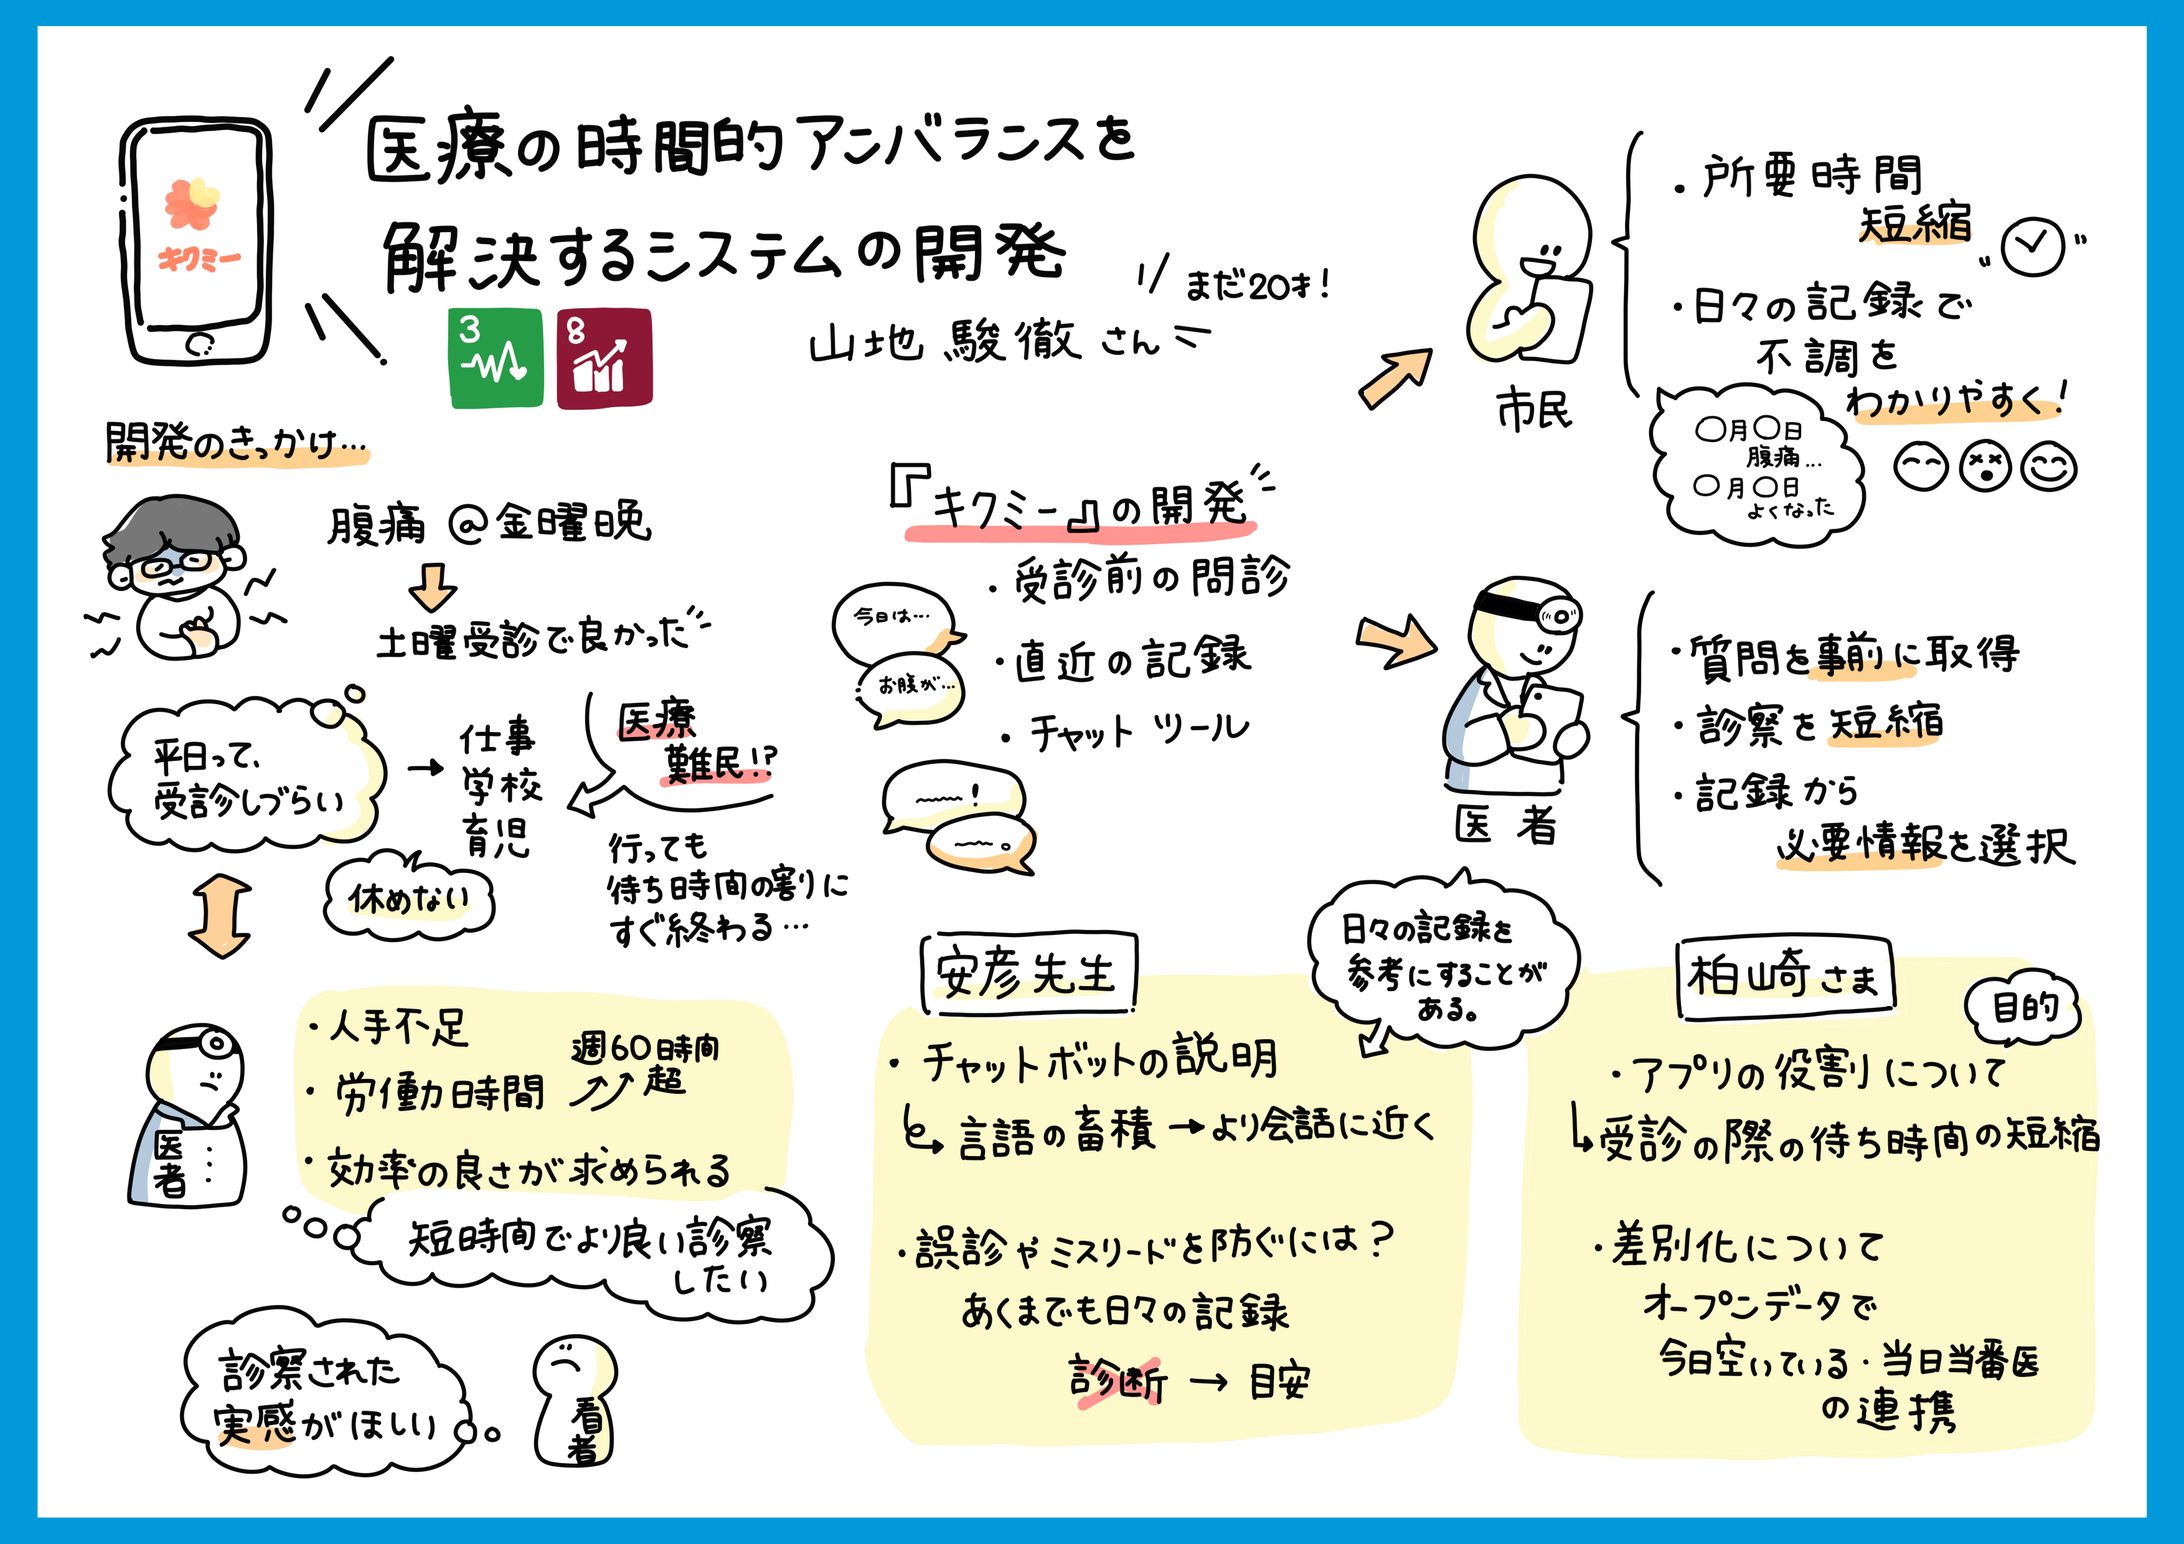 キクミー
医療の時間的アンバランスを
解決するシステムの開発
3
8
まだ20才!
山地 駿徹 さん
開発のきっかけ…
腹痛 @金曜日晩
土曜受診で良かった
平日って、
受診しづらい
→
仕事
学校
育児
休めない
医療
難民!?
行っても
待ち時間の割りに
すぐ終わる…
医者
・人手不足
・労働時間
週60時間
超
・効率の良さが求められる
短時間でより良い診察
したい
診察された
実感がほしい
看者
『キクミー』の開発
・受診前の問診
・直近の記録
・チャットツール
今日は…
お腹が…
!
。
市民
・所要時間
短縮
・日々の記録で
不調を
わかりやすく!
〇月〇日
腹痛…
〇月〇日
よくなった
医者
・質問を事前に取得
・診察を短縮
・記録から
必要情報を選択
安彦先生
・チャットボットの説明
言語の畜積→より会話に近く
日々の記録を
参考にすることが
ある。
・誤診やミスリードを防ぐには?
あくまでも日々の記録
診断 → 目安
柏崎さま
目的
・アプリの役割について
受診の際の待ち時間の短縮
・差別化について
オープンデータで
今日空いている・当日当番医
の連携